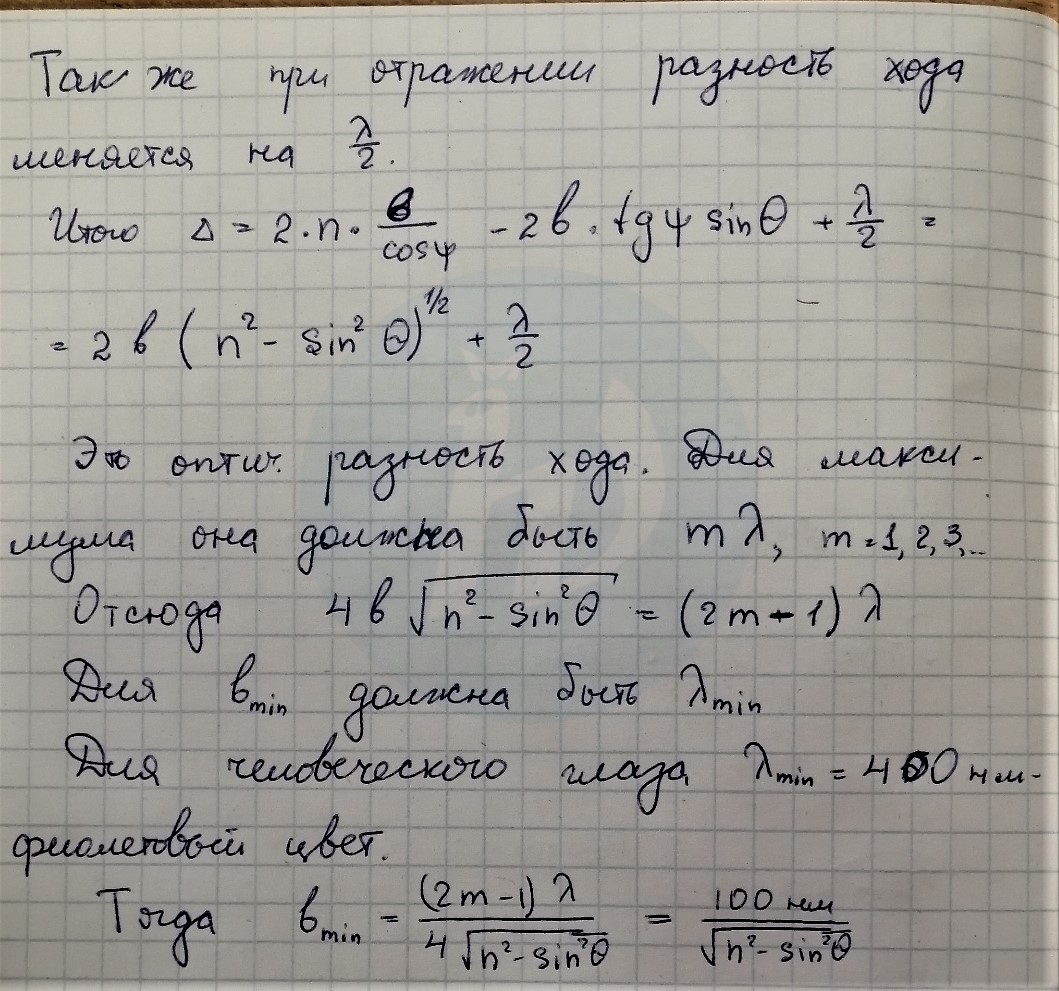 Так же при отражении разность хода
меняется на λ/2.
Итого Δ = 2·n· b/cosψ - 2b · tgψ sinθ + λ/2 =
= 2b (n² - sin² θ)^1/2 + λ/2
Это оптич. разность хода. Для макси-
мума она должна быть mλ, m = 1, 2, 3,...
Отсюда 4b √(n² - sin²θ) = (2m - 1) λ
Для bmin должна быть λmin
Для человеческого глаза λmin = 400 нм -
фиолетовый цвет.
Тогда bmin = (2m-1) λ / 4√(n² - sin²θ) = 100 нм / √(n² - sin²θ)